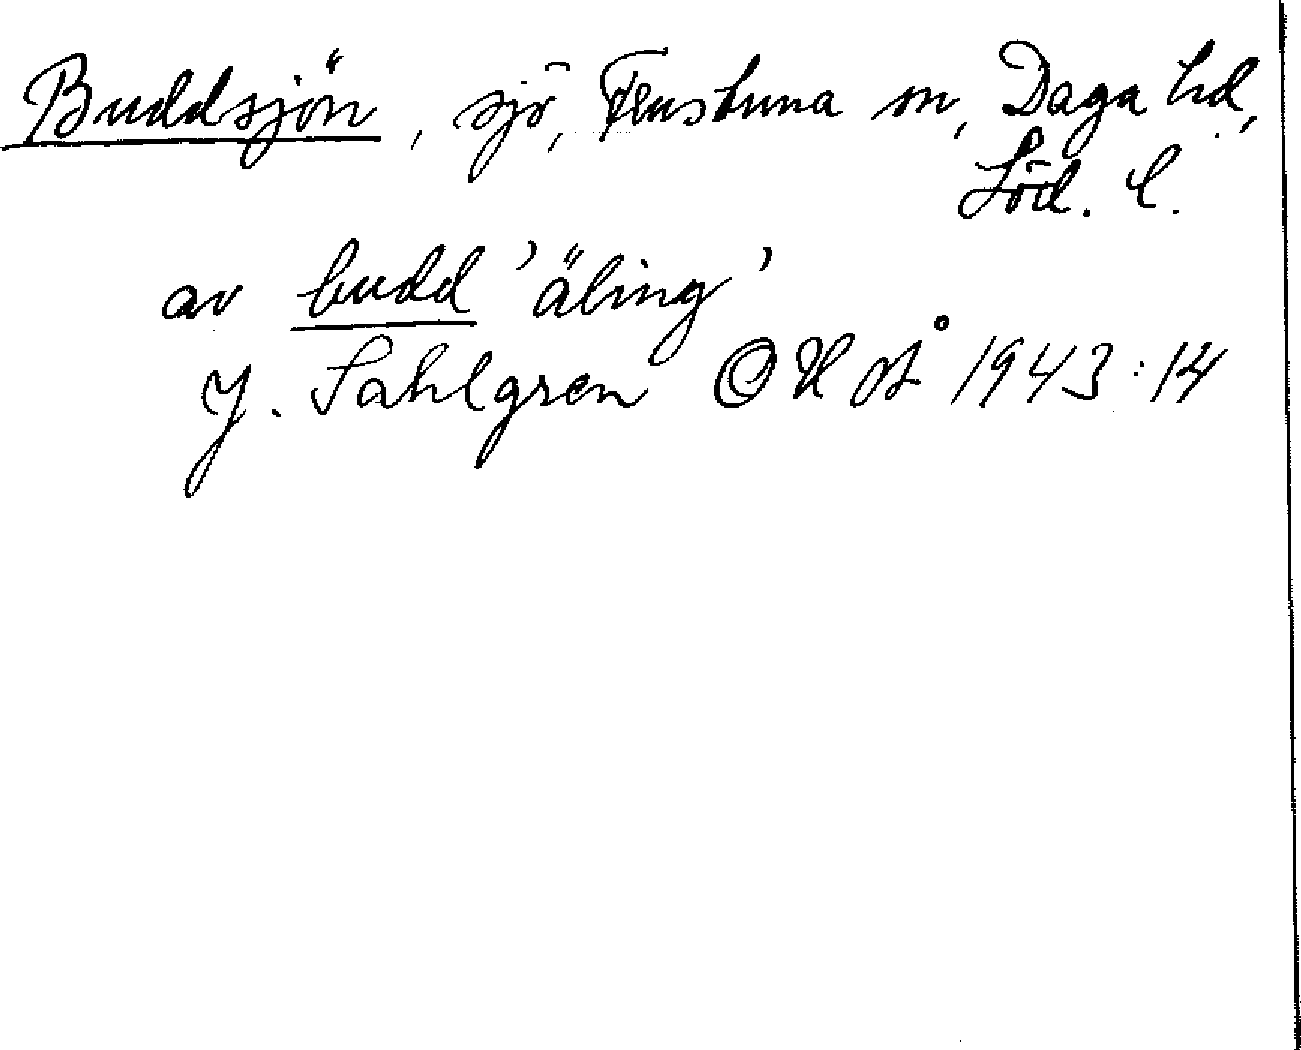 Buddsjön, sjö, Frustuna sn, Daga hd,
Söd. l.
av budd 'äling'
J. Sahlgren OH st 1943:14